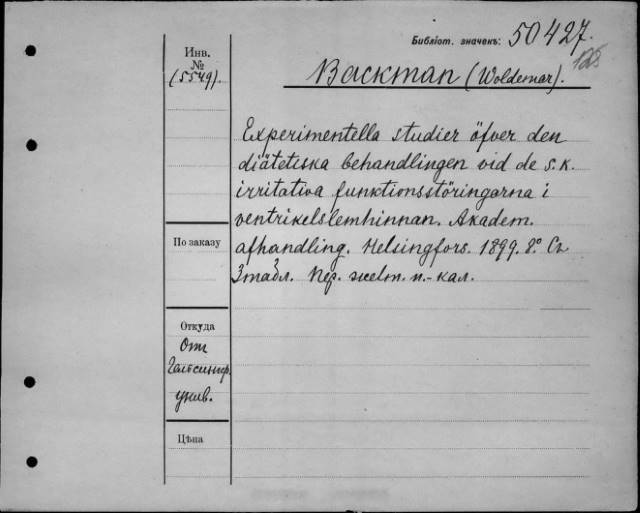 Библіот. значекъ: 50427.
Инв.
№
(5549).
Backman (Woldemar).
Experimentella studier öfver den
diätetiska behandlingen vid de s.k.
irritativa funktionsstöringarna i
ventrikelslemhinnan. Akadem.
afhandling. Helsingfors. 1899. 8° Съ
3 табл. Пер. желт. п.-кал.
По заказу
Откуда
От
Гельсингф.
унив.
Цѣна